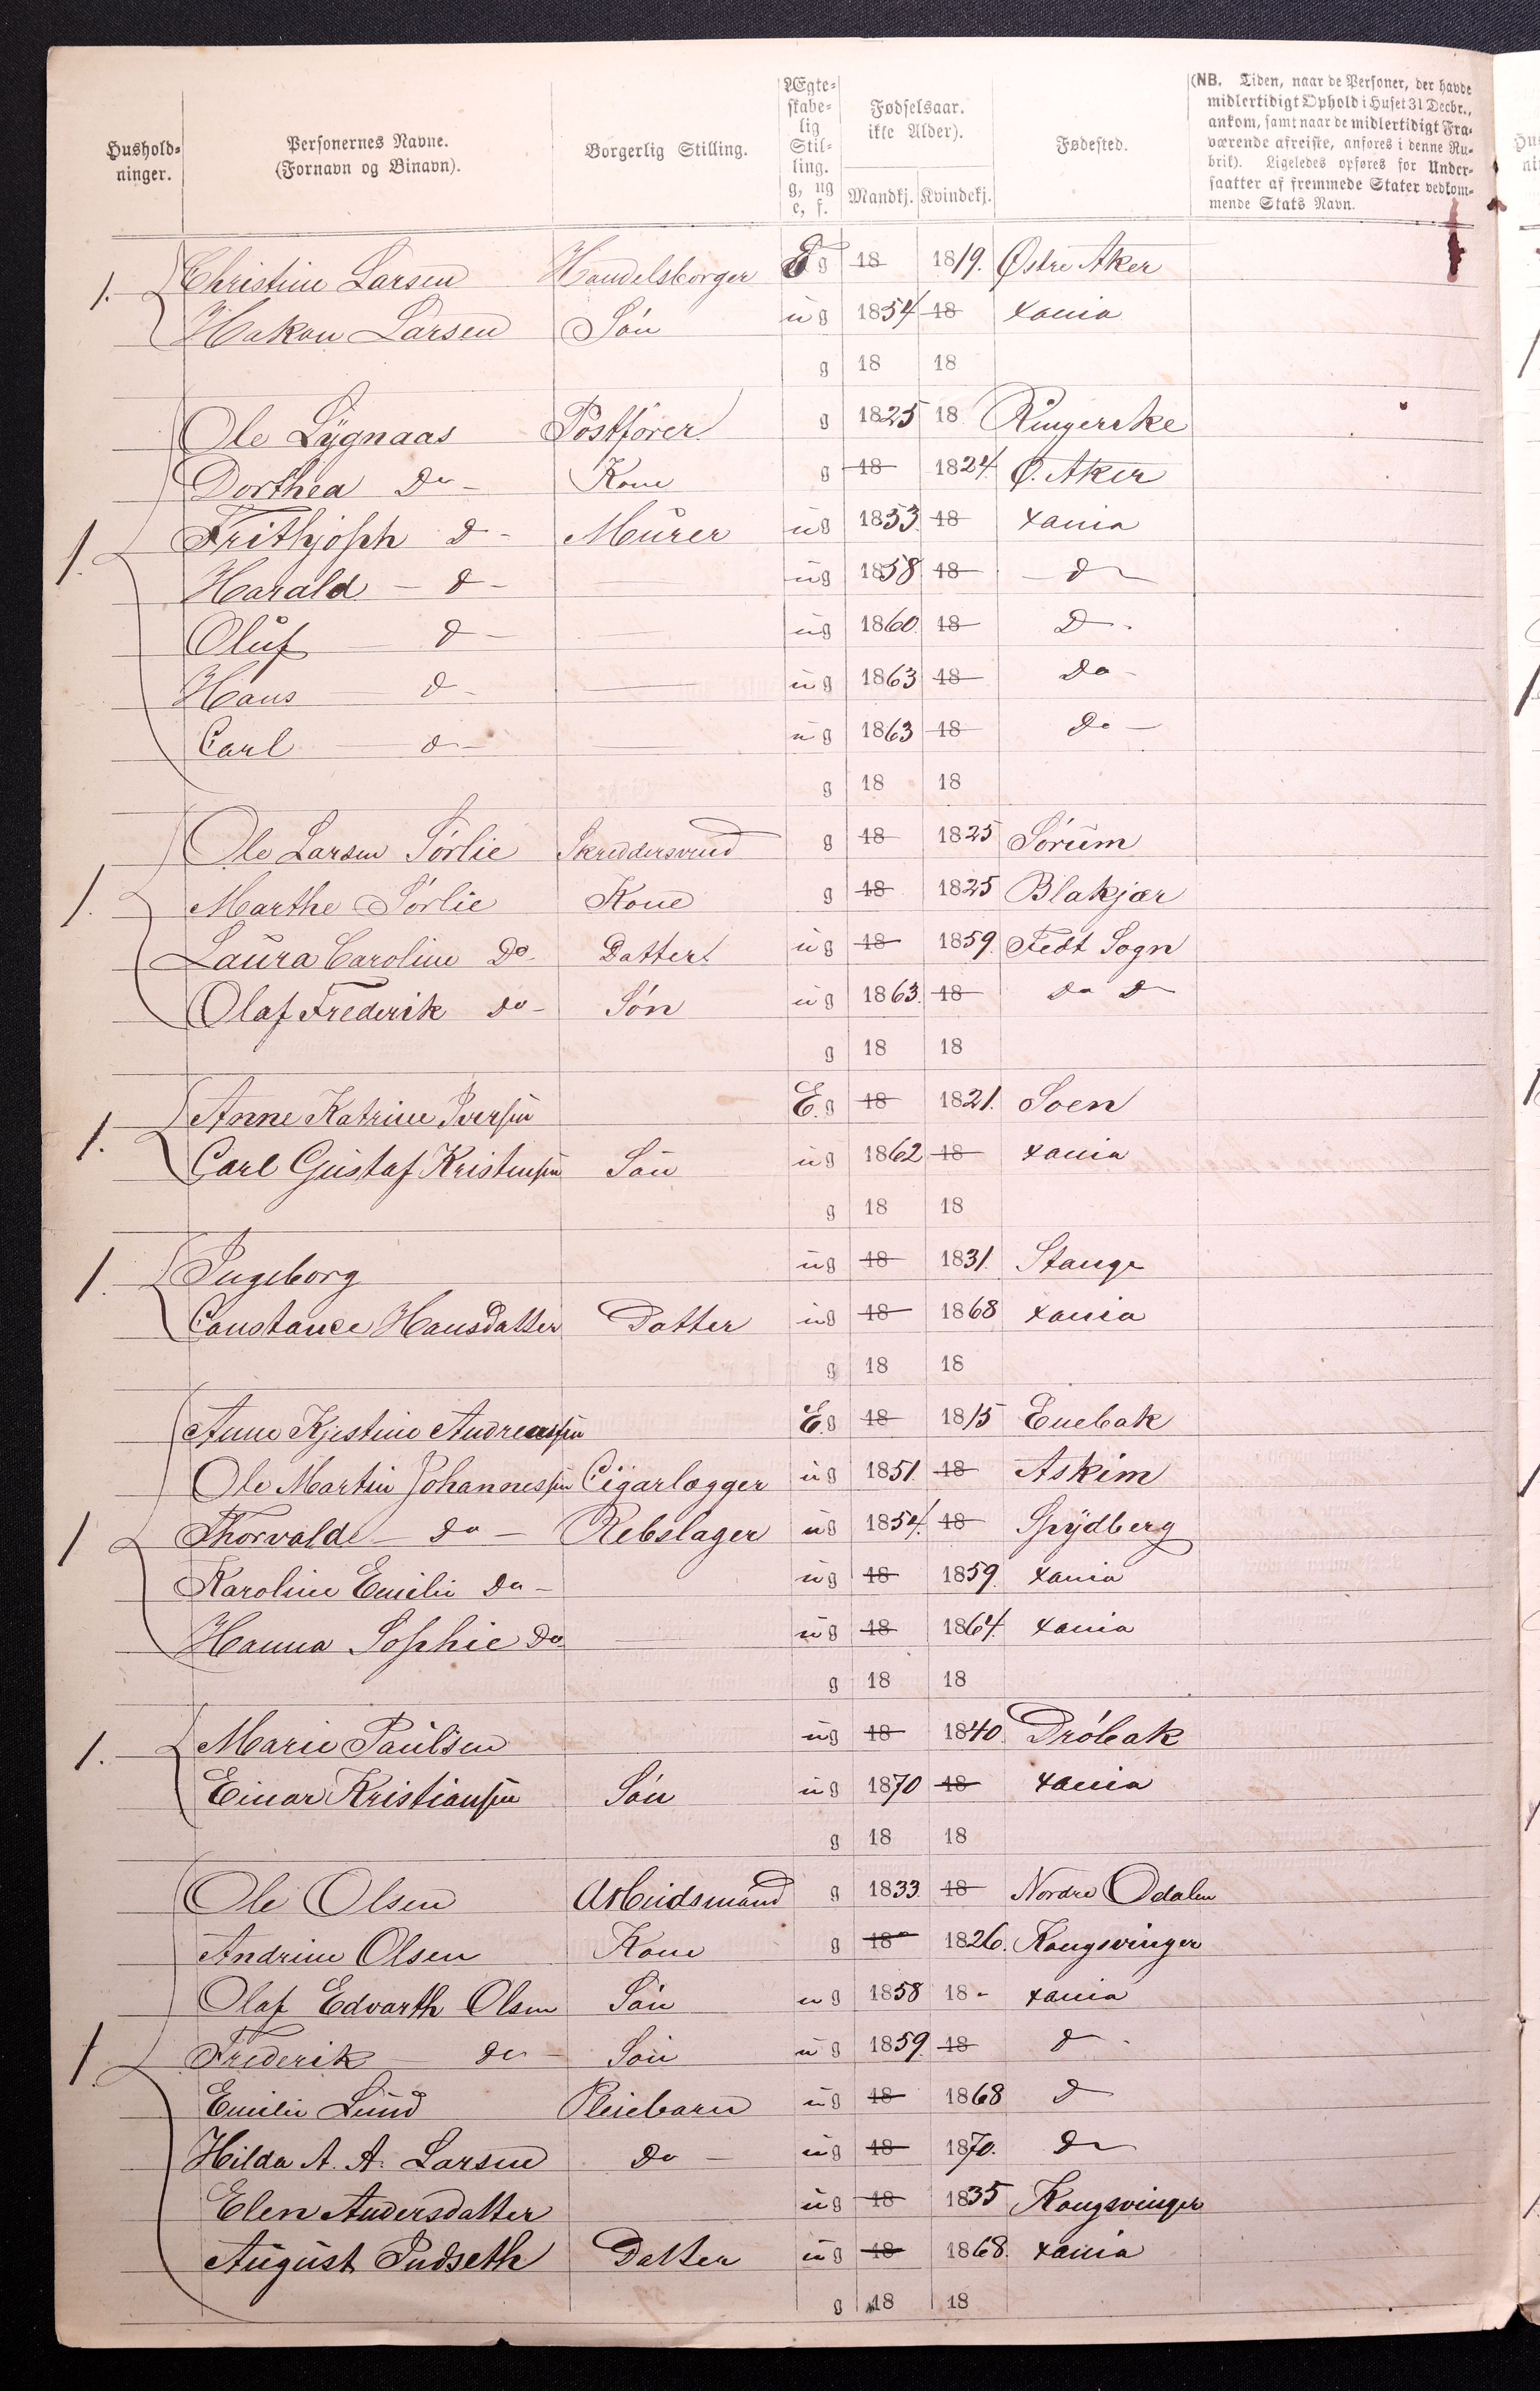 Hushold-ninger. Personernes Navne. (Fornavn og Binavn). Borgerlig Stilling. Ægte-skabe-lig Stil-ling. g, ug e, f. Fødselsaar. ikke Alder). Mandkj. Kvindekj. Fødested. (NB. Tiden, naar de Personer, der havde midlertidigt Ophold i Huset 31 Decbr., ankom, samt naar de midlertidigt Fra-værende afreiste, anføres i denne Ru-brik). Ligeledes opføres for Under-saatter af fremmede Stater vedkom-mende Stats Navn.
1. Christine Larsen Handelsborger E g 18 1819. Østre Aker
Hakon Larsen Søn u g 1854 18 Xania
g 18 18
Ole Lygnaas Postfører g 1825 18 Ringerike
Dorthea Do - Kone g 18 1824. Ø. Aker
1. Frithjoph d - Murer u g 1853. 18 Xania
Harald - d - u g 1858 18 d
Oluf - d - u g 1860. 18 D -
Hans - d - u g 1863 18 Do -
Carl - d - u g 1863 18 Do -
g 18 18
Ole Larsen Sørlie Skreddersvend g 18 1825 Sørum
1. Marthe Sørlie Kone g 18 1825 Blakjær
Laura Caroline Do - Datter u g 18 1859. Fedt Sogn
Olaf Frederik do - Søn u g 1863. 18 Do D
g 18 18
1. Anne Katrine Iversen E. g 18 1821. Soen
Carl Gustaf Kristensen Søn u g 1862 18 Xania
g 18 18
1. Ingeborg u g 18 1831. Stange
Constance Hansdatter Datter u g 18 1868 Xania
g 18 18
Anne Kjestine Andreassen E. g 18 1815 Enebak
Ole Martin Johannessen Cigarlægger u g 1851. 18 Askim
1 Thorvald - do - Rebslager u g 1854. 18 Spydberg
Karoline Emilie Do - u g 18 1859. Xania
Hanna Sophie Do u g 18 1864. Xania
g 18 18
1. Marie Paulsen u g 18 1840. Drøbak
Einar Kristiansen Søn u g 1870 18 Xania
g 18 18
Ole Olsen Arbeidsmand g 1833. 18 Nordre Odalen
Andrine Olsen Kone g 18 1826. Kongsvinger
Olaf Edvarth Olsen Søn u g 1858 18 - Xania
1. Frederik - do - Søn u g 1859. 18 d -
Emilie Lund Pleiebarn u g 18 1868 d
Hilda A. A. Larsen Do - u g 18 1870. Do
Elen Andersdatter u g 18 1835 Kongsvinger
August Indseth Datter u g 18 1868. Xania
g 18 18